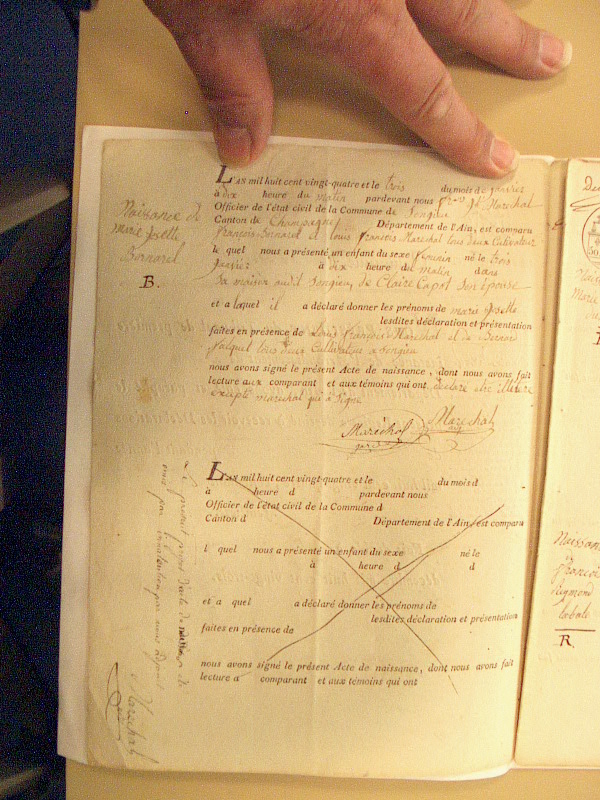 Naissance de
marie joselle
Bernard
B.
L'an mil huit cent vingt-quatre et le trois du mois de janvier
à dix heure du matin pardevant nous Marechal
Officier de l'état civil de la Commune de Songieu
Canton de Champagne Département de l'Ain, est comparu
françois Bernard et louis françois Marechal tous deux Cultivateur
lequel nous a présenté un enfant du sexe né le trois
janvier à dix heure du matin dans
Sa maison audit Songieu, de Claire Capot Son épouse
et a laquel il a déclaré donner les prénoms de marie joselle
lesdites déclaration et présentation
faites en présence de Louis françois Marechal et de Bernard
tous deux Cultivateur a Songieu
nous avons signé le présent Acte de naissance, dont nous avons fait
lecture aux comparant et aux témoins qui ont déclaré être
excepté marechal qui a Signé
Maréchal Marechal
L'an mil huit cent vingt-quatre et le du mois d
à heure d pardevant nous
Officier de l'état civil de la Commune d
Canton d Département de l'Ain, est comparu
l quel nous a présenté un enfant du sexe né le
à heure d d
et a quel a déclaré donner les prénoms de
lesdites déclaration et présentation
faites en présence de
nous avons signé le présent Acte de naissance, dont nous avons fait
lecture a comparant et aux témoins qui ont
Le présent projet d'acte de naissance
par
Maréchal
Naissance
françois
R.